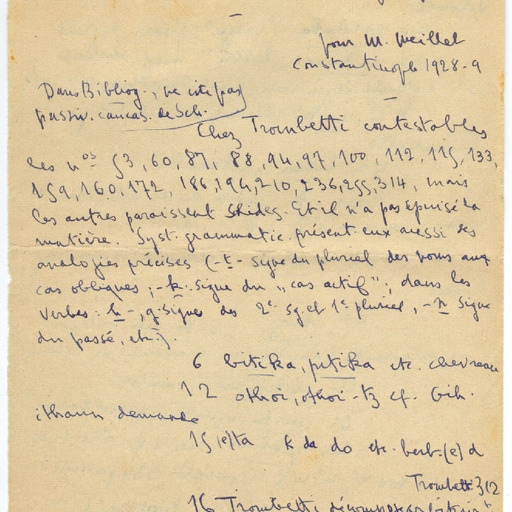 pour M. Meillet
Constantinople 1928-9
Dans Bibliog., ne cite pas
passiv. caucas. de Sch.
Chez Trombetti contestables
les nos 53, 60, 87, 88, 94, 97, 100, 112, 115, 133,
159, 160, 172, 186, 194, 210, 236, 255, 314, mais
les autres paraissent solides. Et il n'a pas épuisé la
matière. Syst. grammatic. présent eux aussi des
analogies précises (-t- signe du pluriel des noms aux
cas obliques ; -k signe du "cas actif" ; dans les
verbes : h-, g- signes des 2e sg. et 1e pluriel, -n signe
du passé, etc).
6 bitika, pitika etc. chevreau
12 othoi, othoi-tz cf.
demande
15 (e)ta da do etc. (e)d
Trombetti 312
16 Trombetti